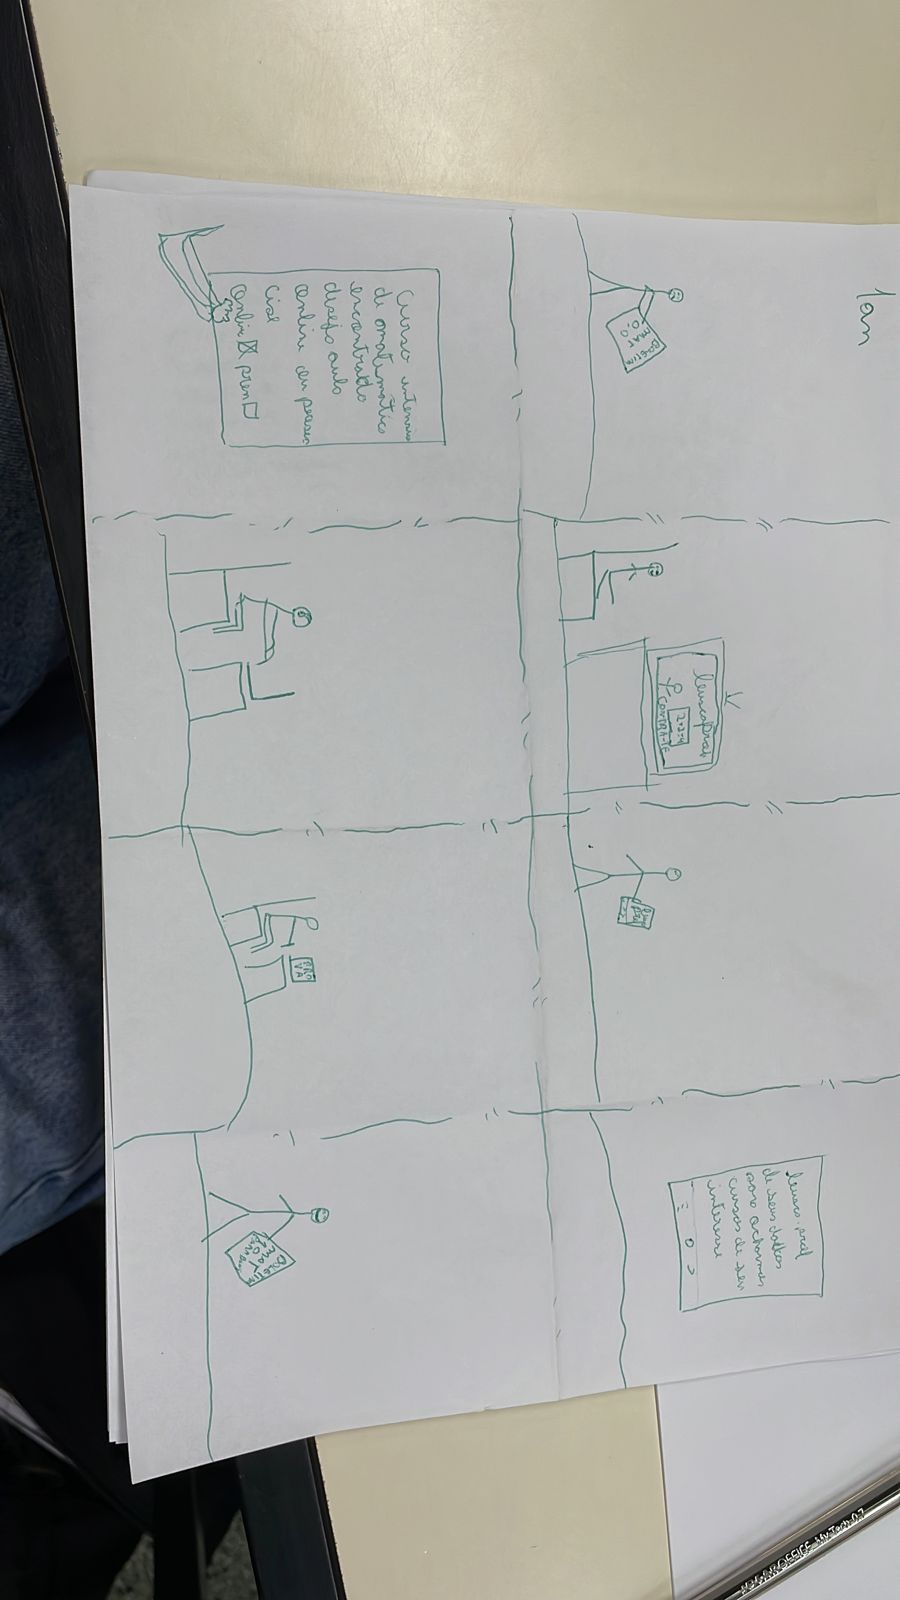 Ian
BOLETIM
MAT
0,0
buscaprof
2+2=4
CONTRA-TE
busca prof
de seus dados
para acharmos
cursos de seu
interesse
Curso intensi
de matemática
encontrado
deseja aula
online ou presen
cial
online pren
PRO
VA
BOLETIM
MAT
10
PARABENS